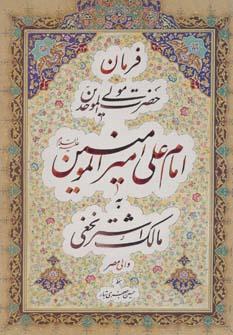 فرمان
حضرت مولی الموحدین
امام علی امیرالمومنین
علیه السلام
به
مالک اشتر نخعی
والی مصر
بخط